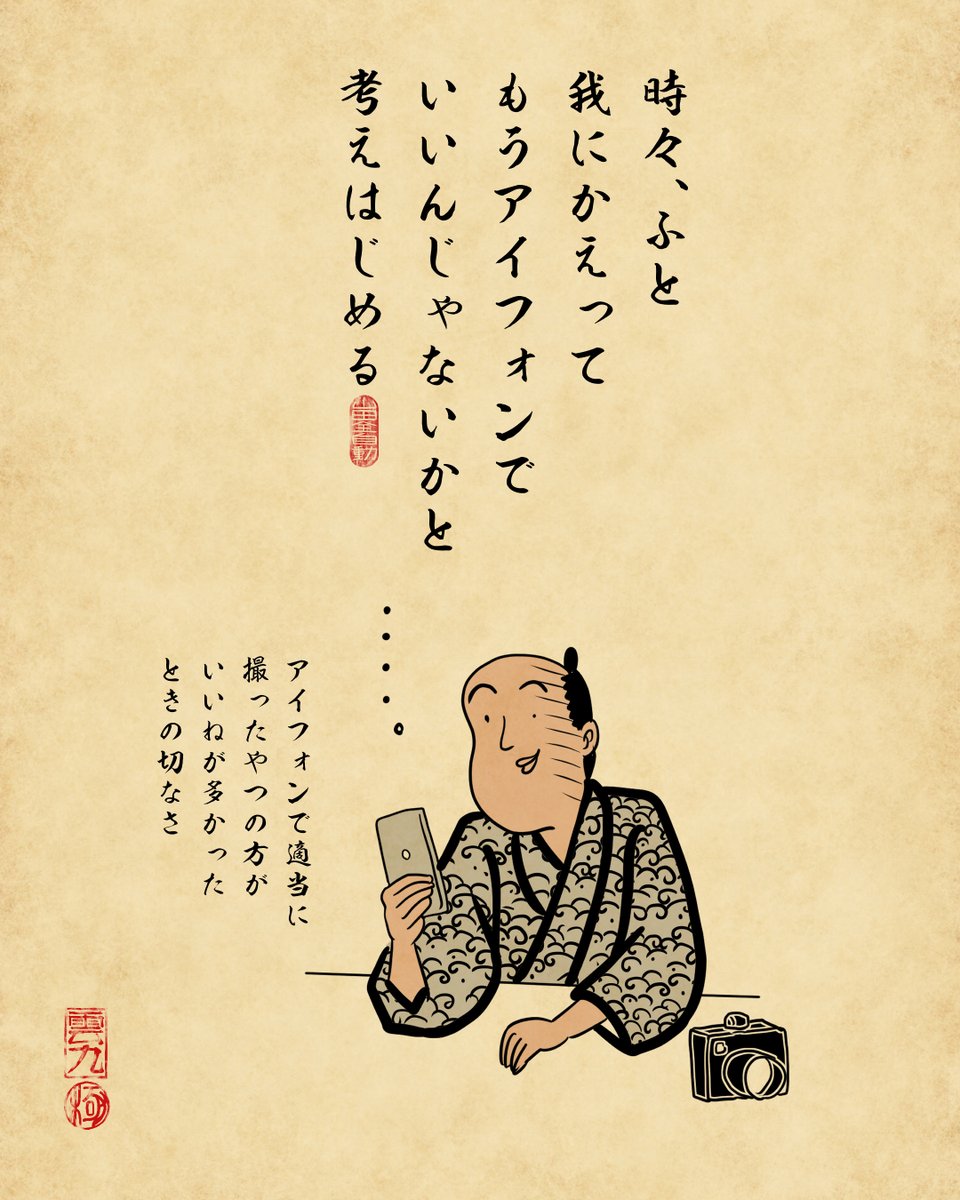 時々、ふと
我にかえって
もうアイフォンで
いいんじゃないかと
考えはじめる
アイフォンで適当に
撮ったやつの方が
いいねが多かった
ときの切なさ